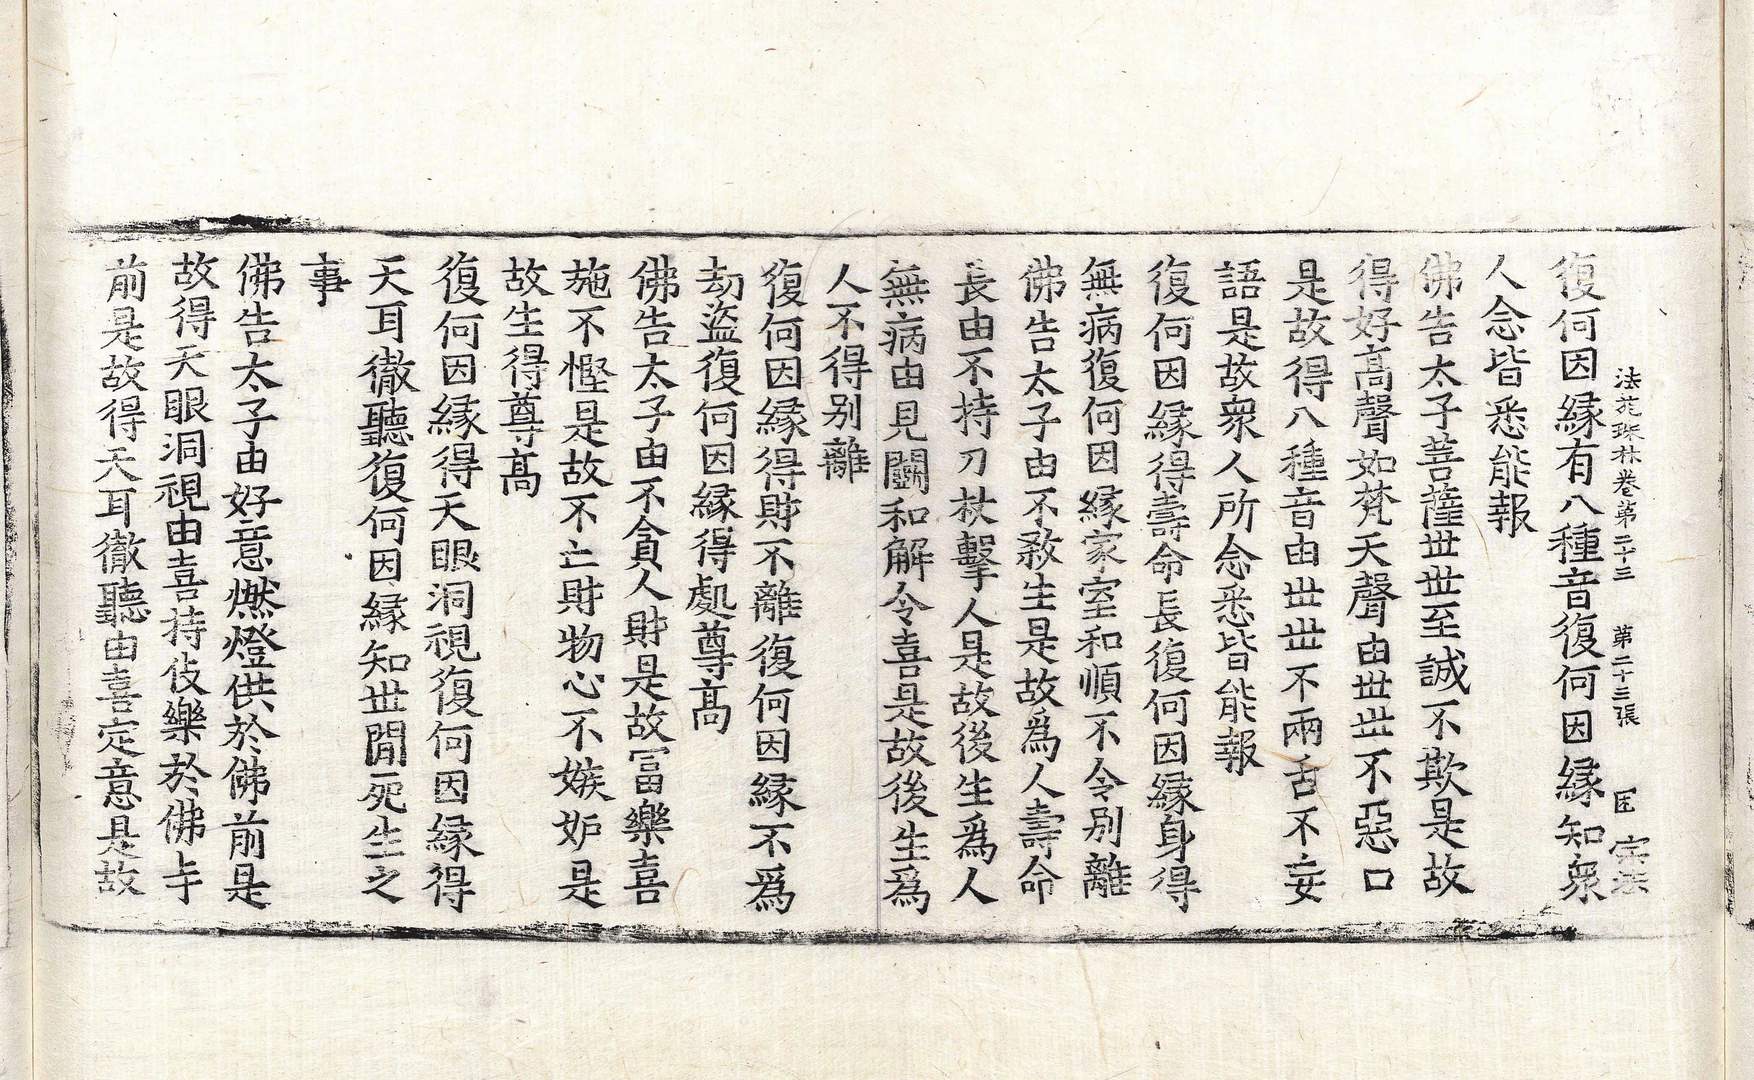 法苑珠林卷第二十三 第二十三張 匡 宗法
復何因緣有八種音復何因緣知衆
人念皆悉能報
佛告太子菩薩丗丗至誠不欺是故
得好髙聲如梵天聲由丗丗不惡口
是故得八種音由丗丗不兩舌不妄
語是故衆人所念悉皆能報
復何因緣得壽命長復何因緣身得
無病復何因緣家室和順不令別離
佛告太子由不煞生是故爲人壽命
長由不持刀杖擊人是故後生爲人
無病由見鬪和解令喜是故後生爲
人不得別離
復何因緣得財不離復何因緣不爲
劫盜復何因緣得處尊髙
佛告太子由不貪人財是故冨樂喜
施不慳是故不亡財物心不嫉妒是
故生得尊髙
復何因緣得天眼洞視復何因緣得
天耳徹聽復何因緣知丗閒死生之
事
佛告太子由好意燃燈供於佛前是
故得天眼洞視由喜持伎樂於佛寺
前是故得天耳徹聽由喜定意是故